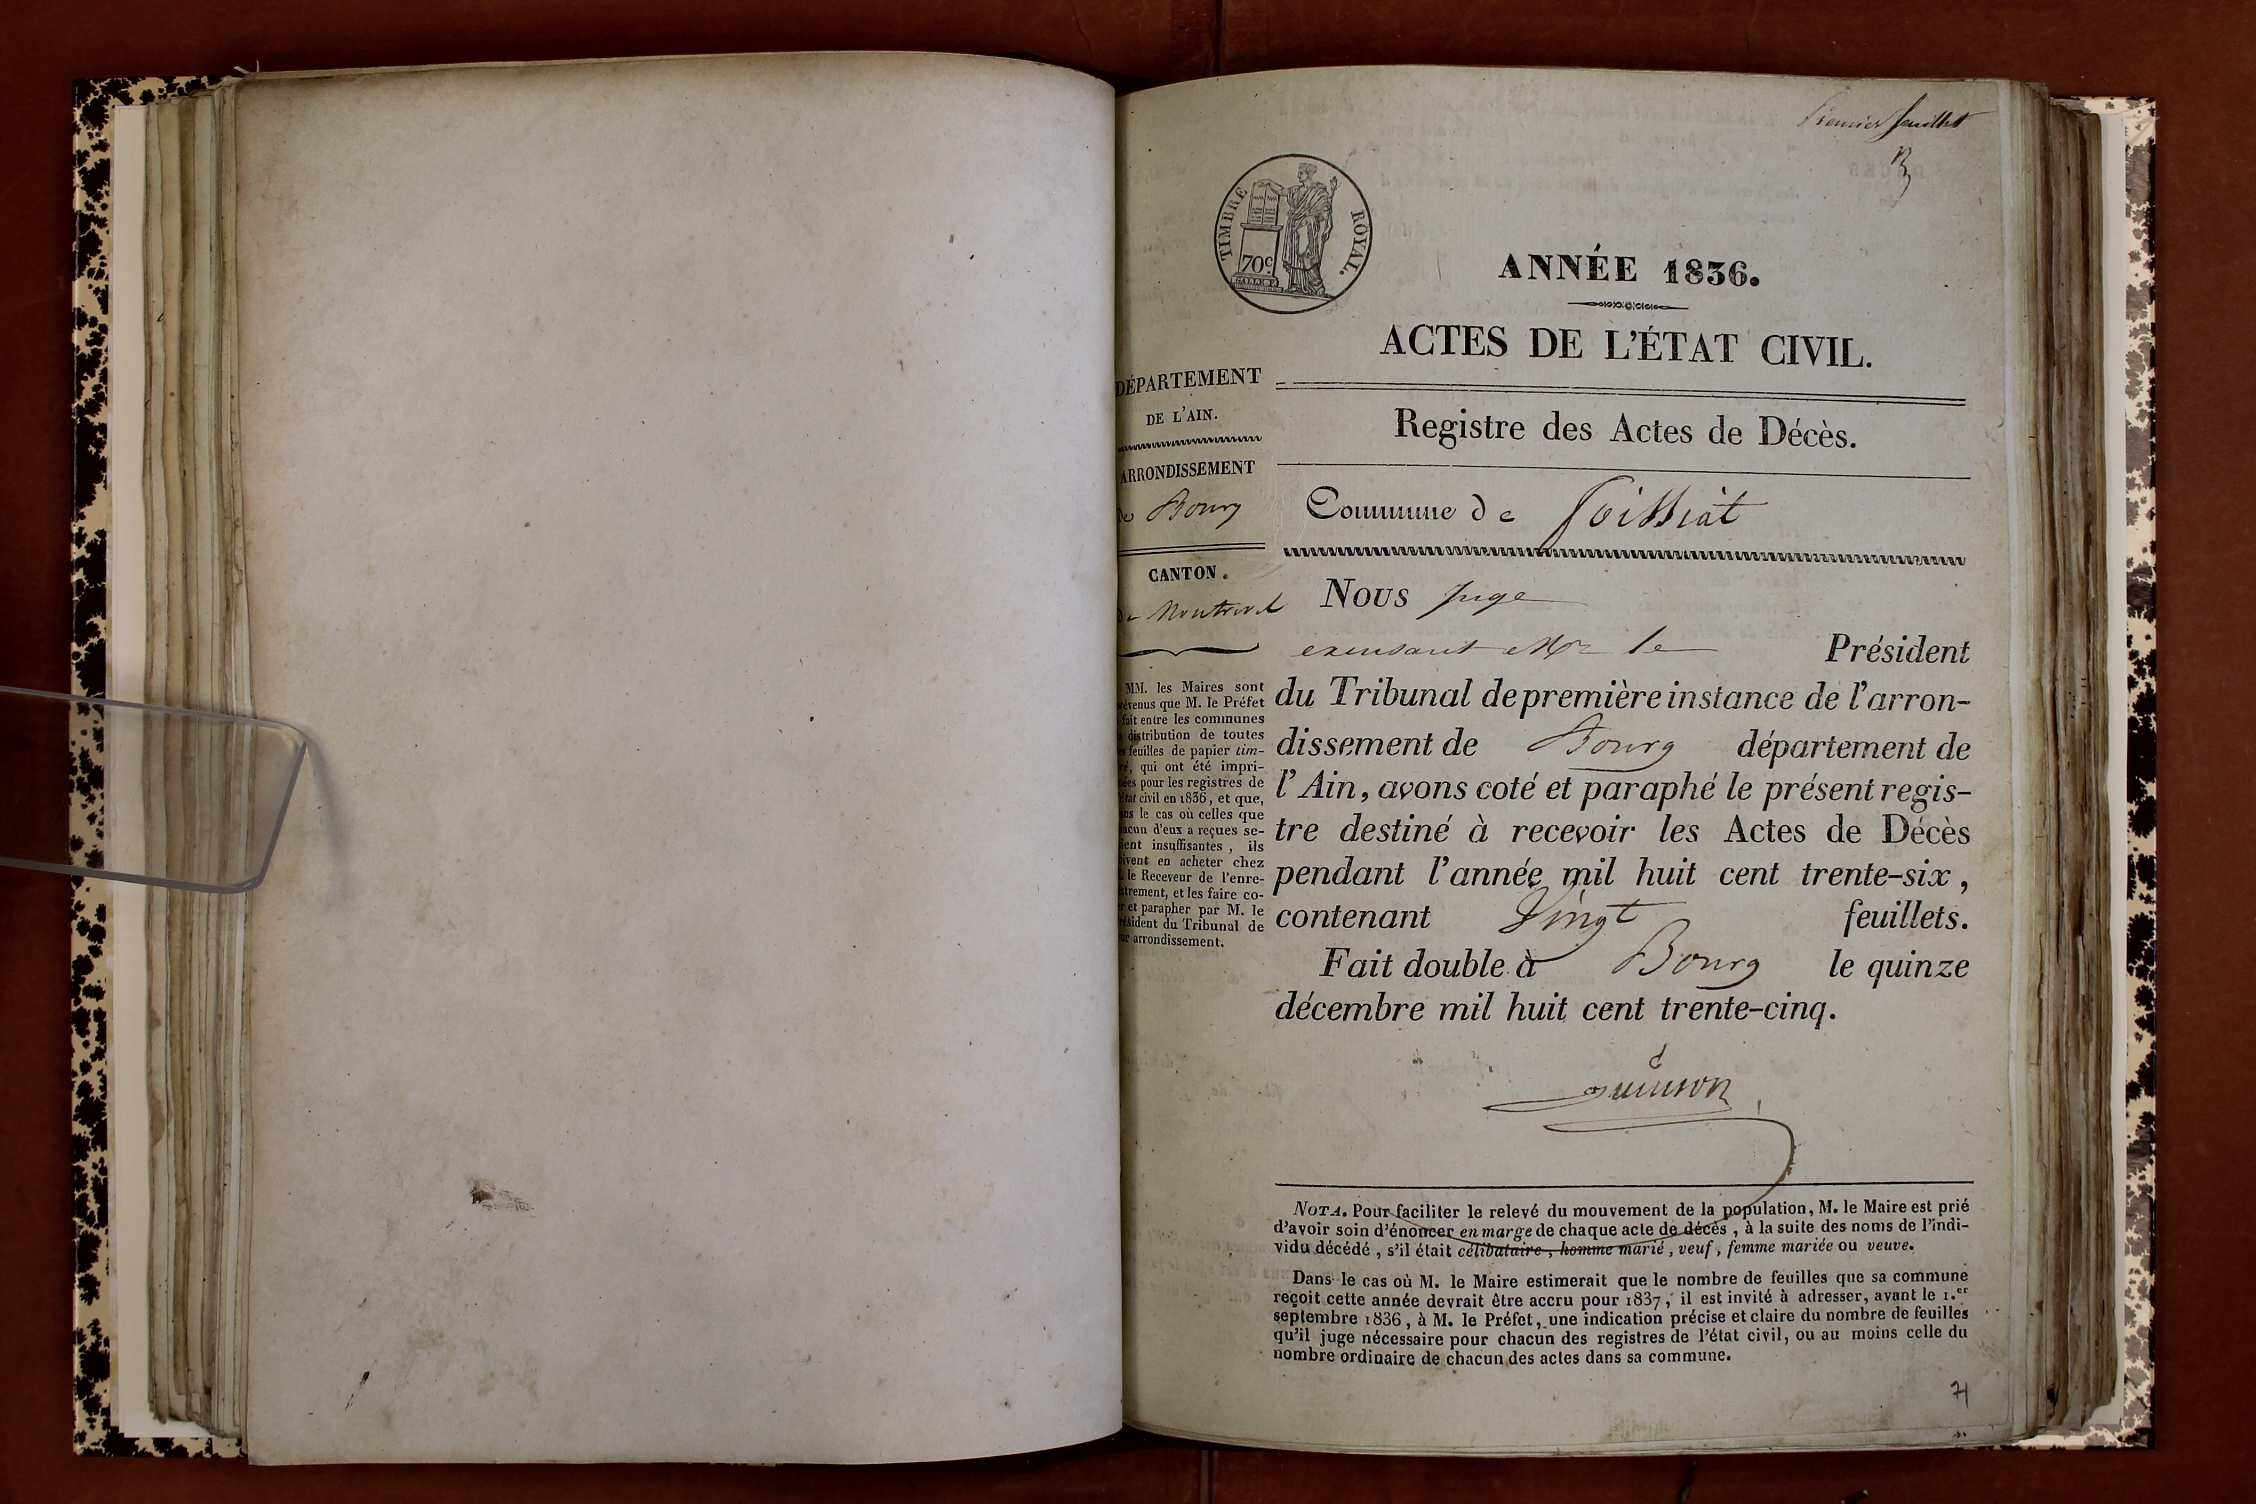 Premier feuillet
TIMBRE ROYAL.
70c
ANNÉE 1836.
ACTES DE L'ÉTAT CIVIL.
DÉPARTEMENT
DE L'AIN.
ARRONDISSEMENT
de Bourg
CANTON.
de Montrevel
MM. les Maires sont
prévenus que M. le Préfet
fait entre les communes
distribution de toutes
feuilles de papier tim-
bré, qui ont été impri-
mées pour les registres de
l'état civil en 1836, et que,
dans le cas où celles que
chacun d'eux a reçues se-
raient insuffisantes, ils
doivent en acheter chez
M. le Receveur de l'enre-
gistrement, et les faire co-
ter et parapher par M. le
Président du Tribunal de
leur arrondissement.
Registre des Actes de Décès.
Commune de Foissiat
Nous Juge
excusant Mr le Président
du Tribunal de première instance de l'arron-
dissement de Bourg département de
l'Ain, avons coté et paraphé le présent regis-
tre destiné à recevoir les Actes de Décès
pendant l'année mil huit cent trente-six,
contenant Vingt feuillets.
Fait double à Bourg le quinze
décembre mil huit cent trente-cinq.
NOTA. Pour faciliter le relevé du mouvement de la population, M. le Maire est prié
d'avoir soin d'énoncer en marge de chaque acte de décès, à la suite des noms de l'indi-
vidu décédé, s'il était célibataire, homme marié, veuf, femme mariée ou veuve.
Dans le cas où M. le Maire estimerait que le nombre de feuilles que sa commune
reçoit cette année devrait être accru pour 1837, il est invité à adresser, avant le 1.er
septembre 1836, à M. le Préfet, une indication précise et claire du nombre de feuilles
qu'il juge nécessaire pour chacun des registres de l'état civil, ou au moins celle du
nombre ordinaire de chacun des actes dans sa commune.
71